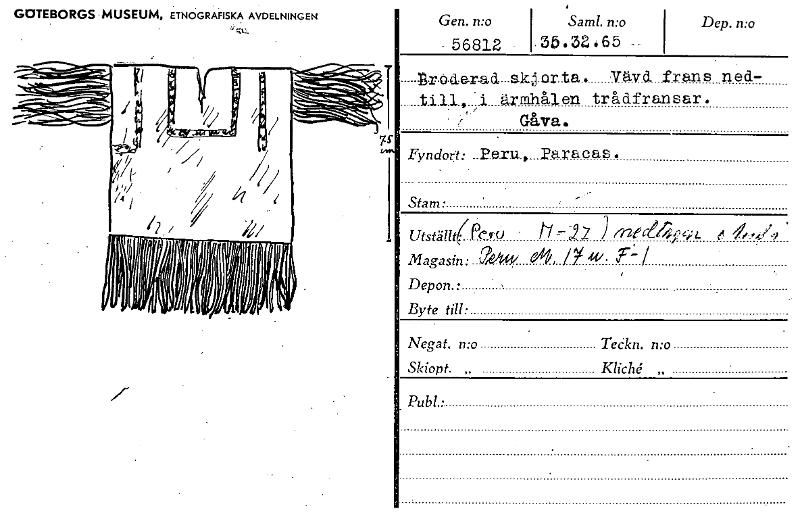 GÖTEBORGS MUSEUM, ETNOGRAFISKA AVDELNINGEN
75
cm
Gen. n:o Saml. n:o Dep. n:o
56812 35.32.65
Broderad skjorta. Vävd frans ned-
till, i ärmhålen trådfransar.
Gåva.
Fyndort: Peru, Paracas.
Stam:
Utställt: (Peru M-27) nedtagen
Magasin: Peru M. 17 F-1
Depon.:
Byte till:
Negat. n:o Teckn. n:o
Skiopt. „ Kliché „
Publ.: